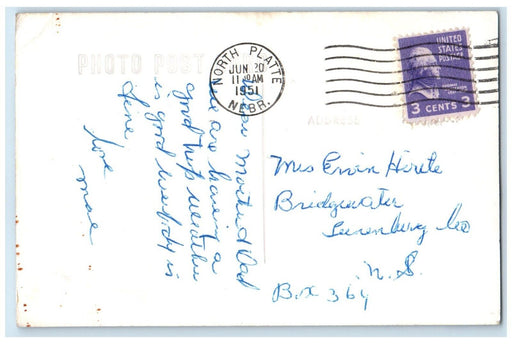 PHOTO POST
NORTH PLATTE
JUN 20
11 AM
1951
NEBR.
UNITED
STATES
POSTAGE
3 CENTS 3
ADDRESS
Dear Mother & Dad
We are having a
good trip weather
is good everybody is
fine
love
Mae
Mrs Ervin Hirtle
Bridgewater
Lunenburg Co
N.S.
Box 364